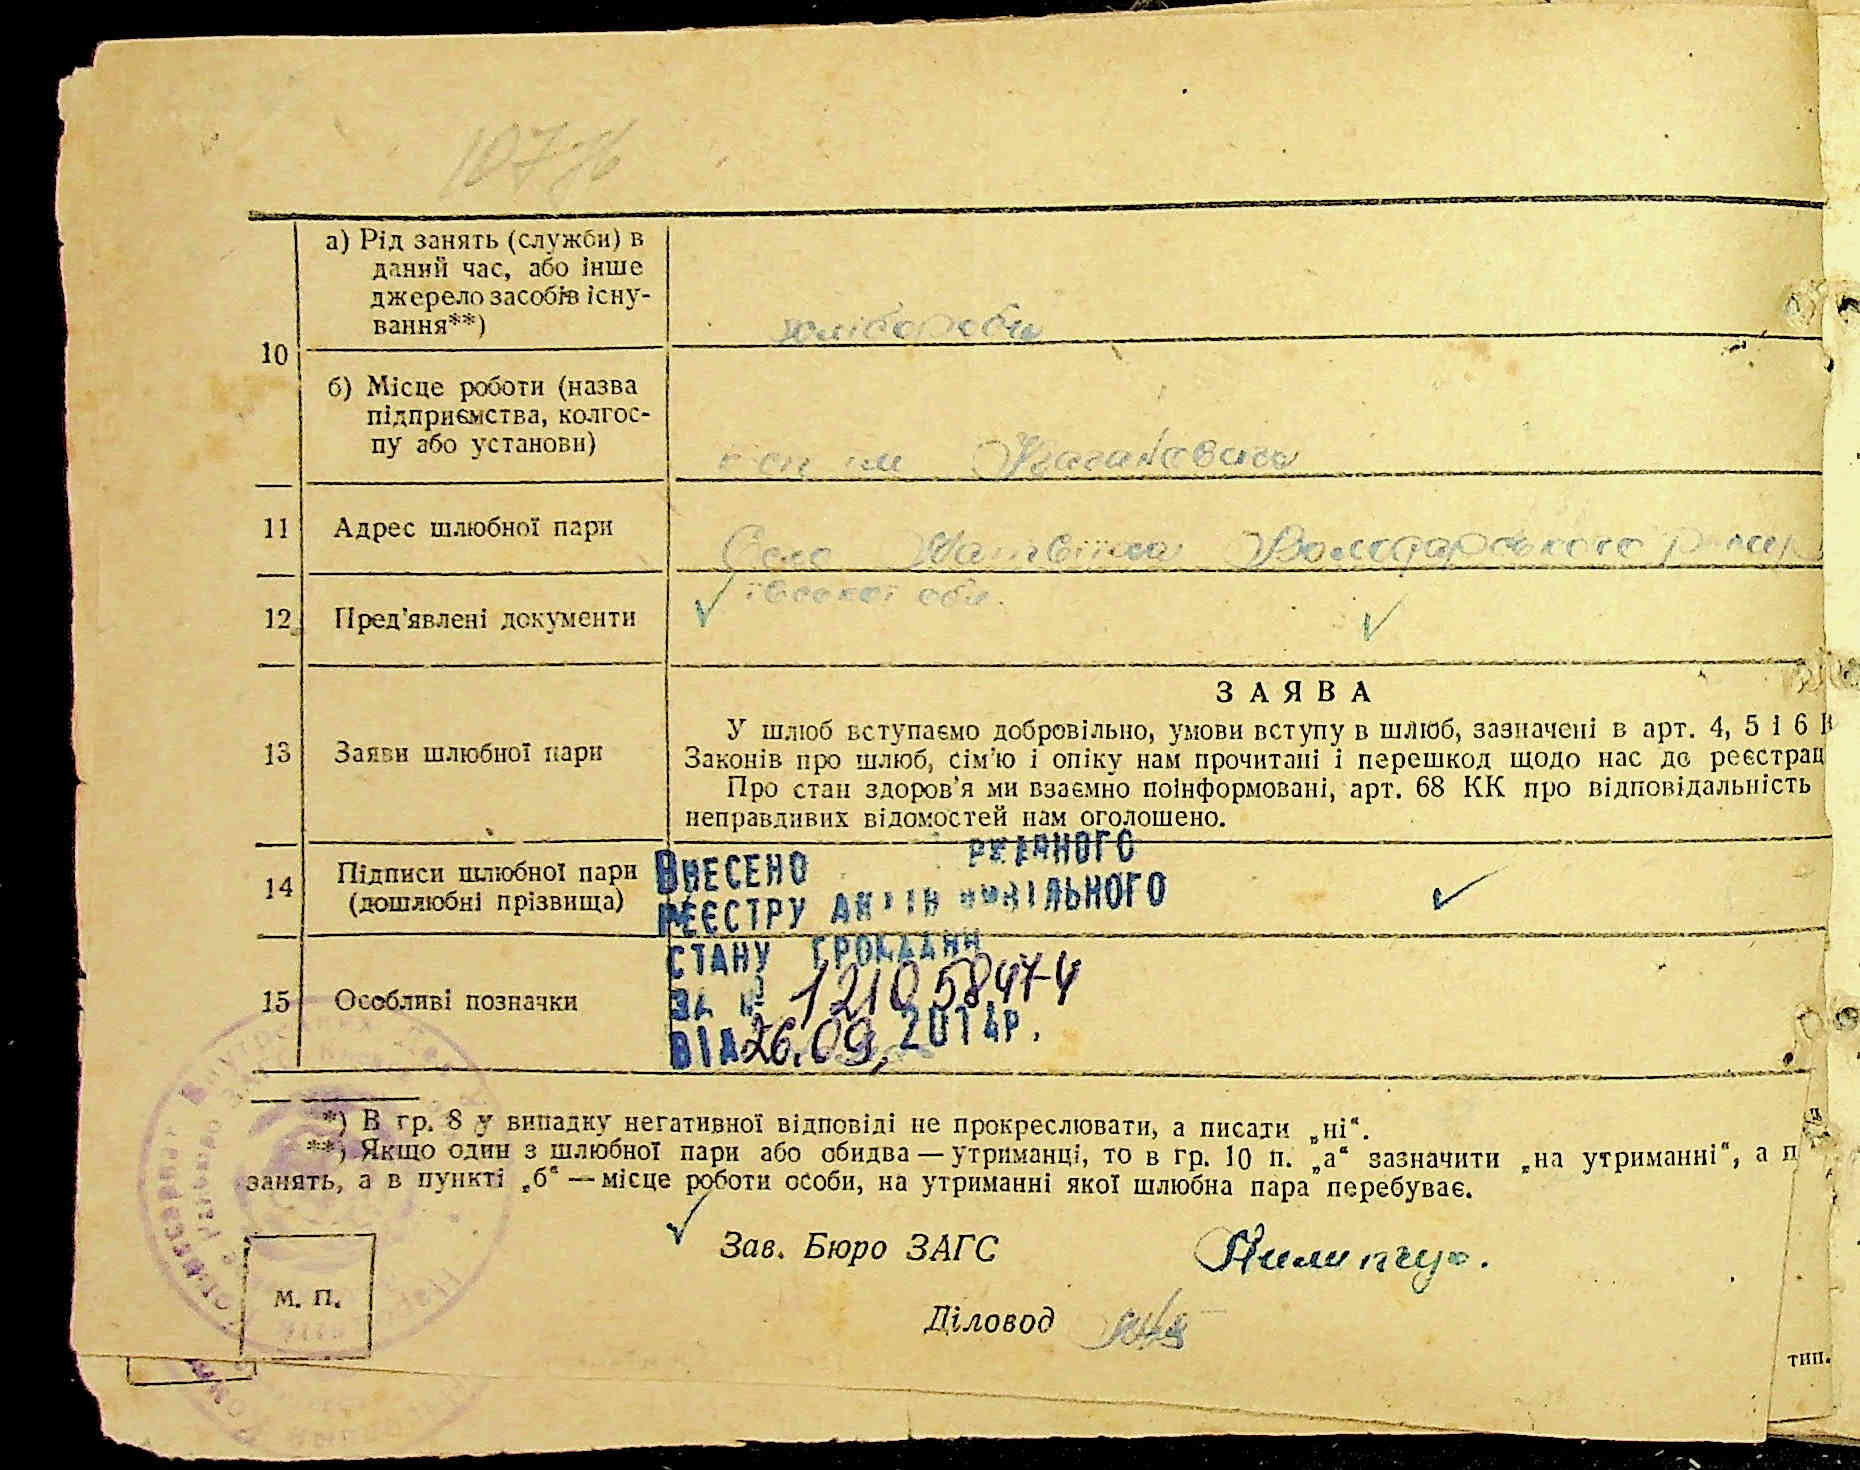 107
а) Рід занять (служби) в
даний час, або інше
джерело засобів існу-
вання**)
хлібороби
10
б) Місце роботи (назва
підприємства, колгос-
пу або установи)
к-сп ім Кагановича
11 Адрес шлюбної пари
Село Матвіїха Володарського району
ївської обл.
12 Пред'явлені документи
ЗАЯВА
У шлюб вступаємо добровільно, умови вступу в шлюб, зазначені в арт. 4, 5 і 6 К
13 Заяви шлюбної пари
Законів про шлюб, сім'ю і опіку нам прочитані і перешкод щодо нас до реєстрац
Про стан здоров'я ми взаємно поінформовані, арт. 68 КК про відповідальність
неправдивих відомостей нам оголошено.
14 Підписи шлюбної пари
(дошлюбні прізвища)
ВНЕСЕНО РЖАВНОГО
РЕЄСТРУ АКТІВ ЦИВІЛЬНОГО
СТАНУ ГРОМАДЯН
ЗА № 12105847-4
ВІД 26.09. 2014Р.
15 Особливі позначки
*) В гр. 8 у випадку негативної відповіді не прокреслювати, а писати „ні“.
**) Якщо один з шлюбної пари або обидва — утриманці, то в гр. 10 п. „а“ зазначити „на утриманні“, а п
занять, а в пункті „б“ — місце роботи особи, на утриманні якої шлюбна пара перебуває.
Зав. Бюро ЗАГС Пилипчук.
М. П.
Діловод
тип.